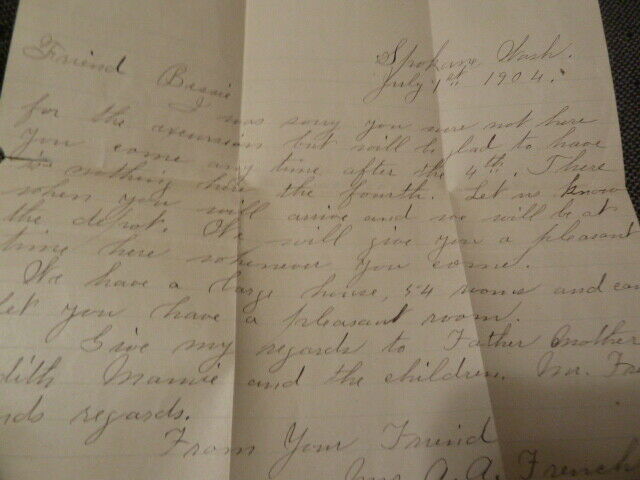 Spokane Wash.
July 1st 1904.
Friend Bessie
I was sorry you were not here
for the excursion but will be glad to have
you come any time after the 4th. There
is nothing here the fourth. Let us know
when you will arrive and we will be at
the depot. We will give you a pleasant
time here whenever you come.
We have a large house, 54 rooms and can
let you have a pleasant room.
Give my regards to Father Mother
dith Mamie and the children. Mr. Fre
nds regards.
From Your Friend
Mrs A. A. French